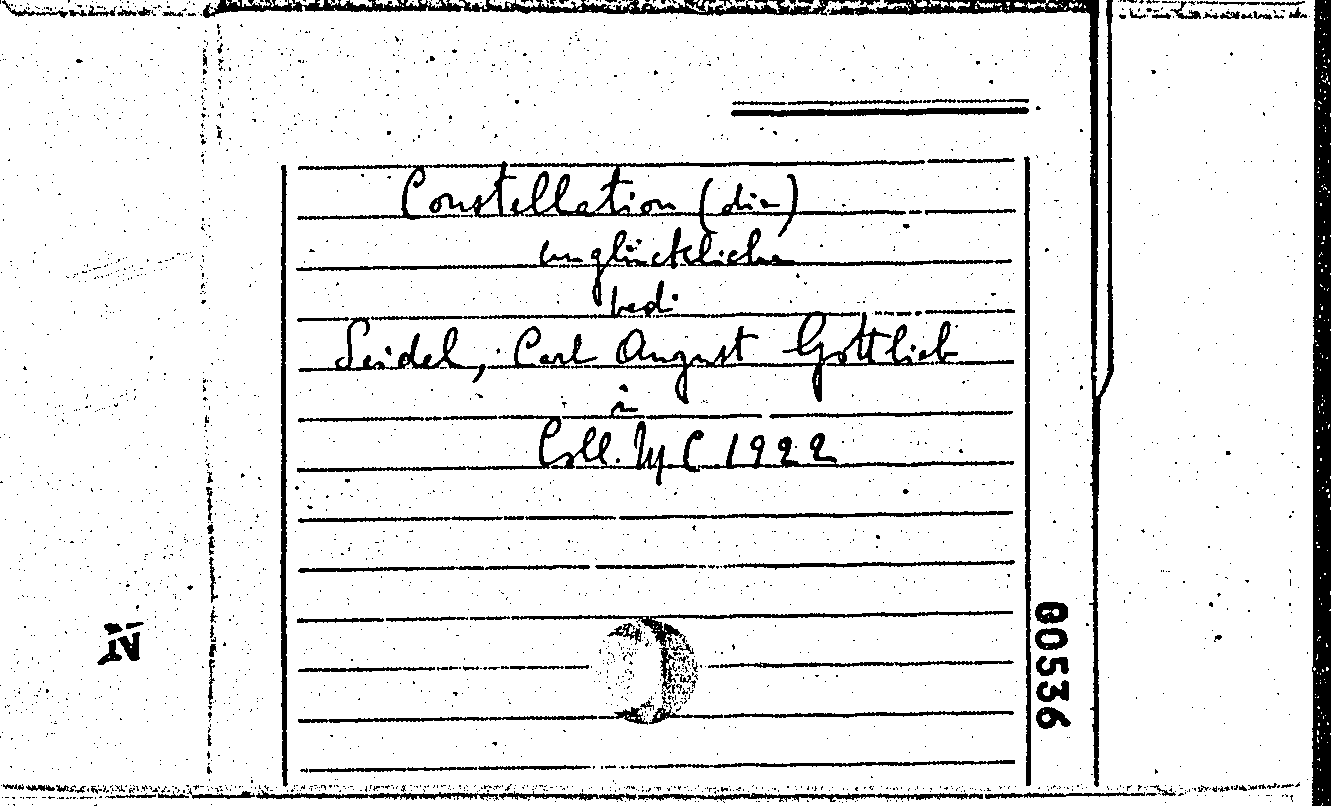 Constellation (die)
unglückliche
vedi
Seidel, Carl August Gottlieb
in
Coll. M C 1922
00536
N